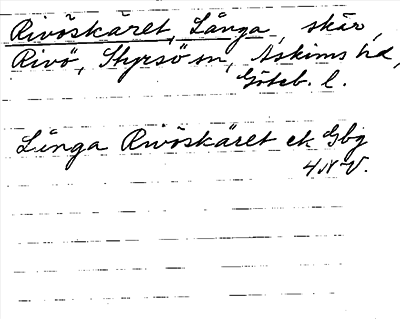 Rivöskäret, Långa, skär,
Rivö, Styrsö sn, Askims hd,
Göteb. l.
Långa Rivöskäret ek Gbg
4 NV.